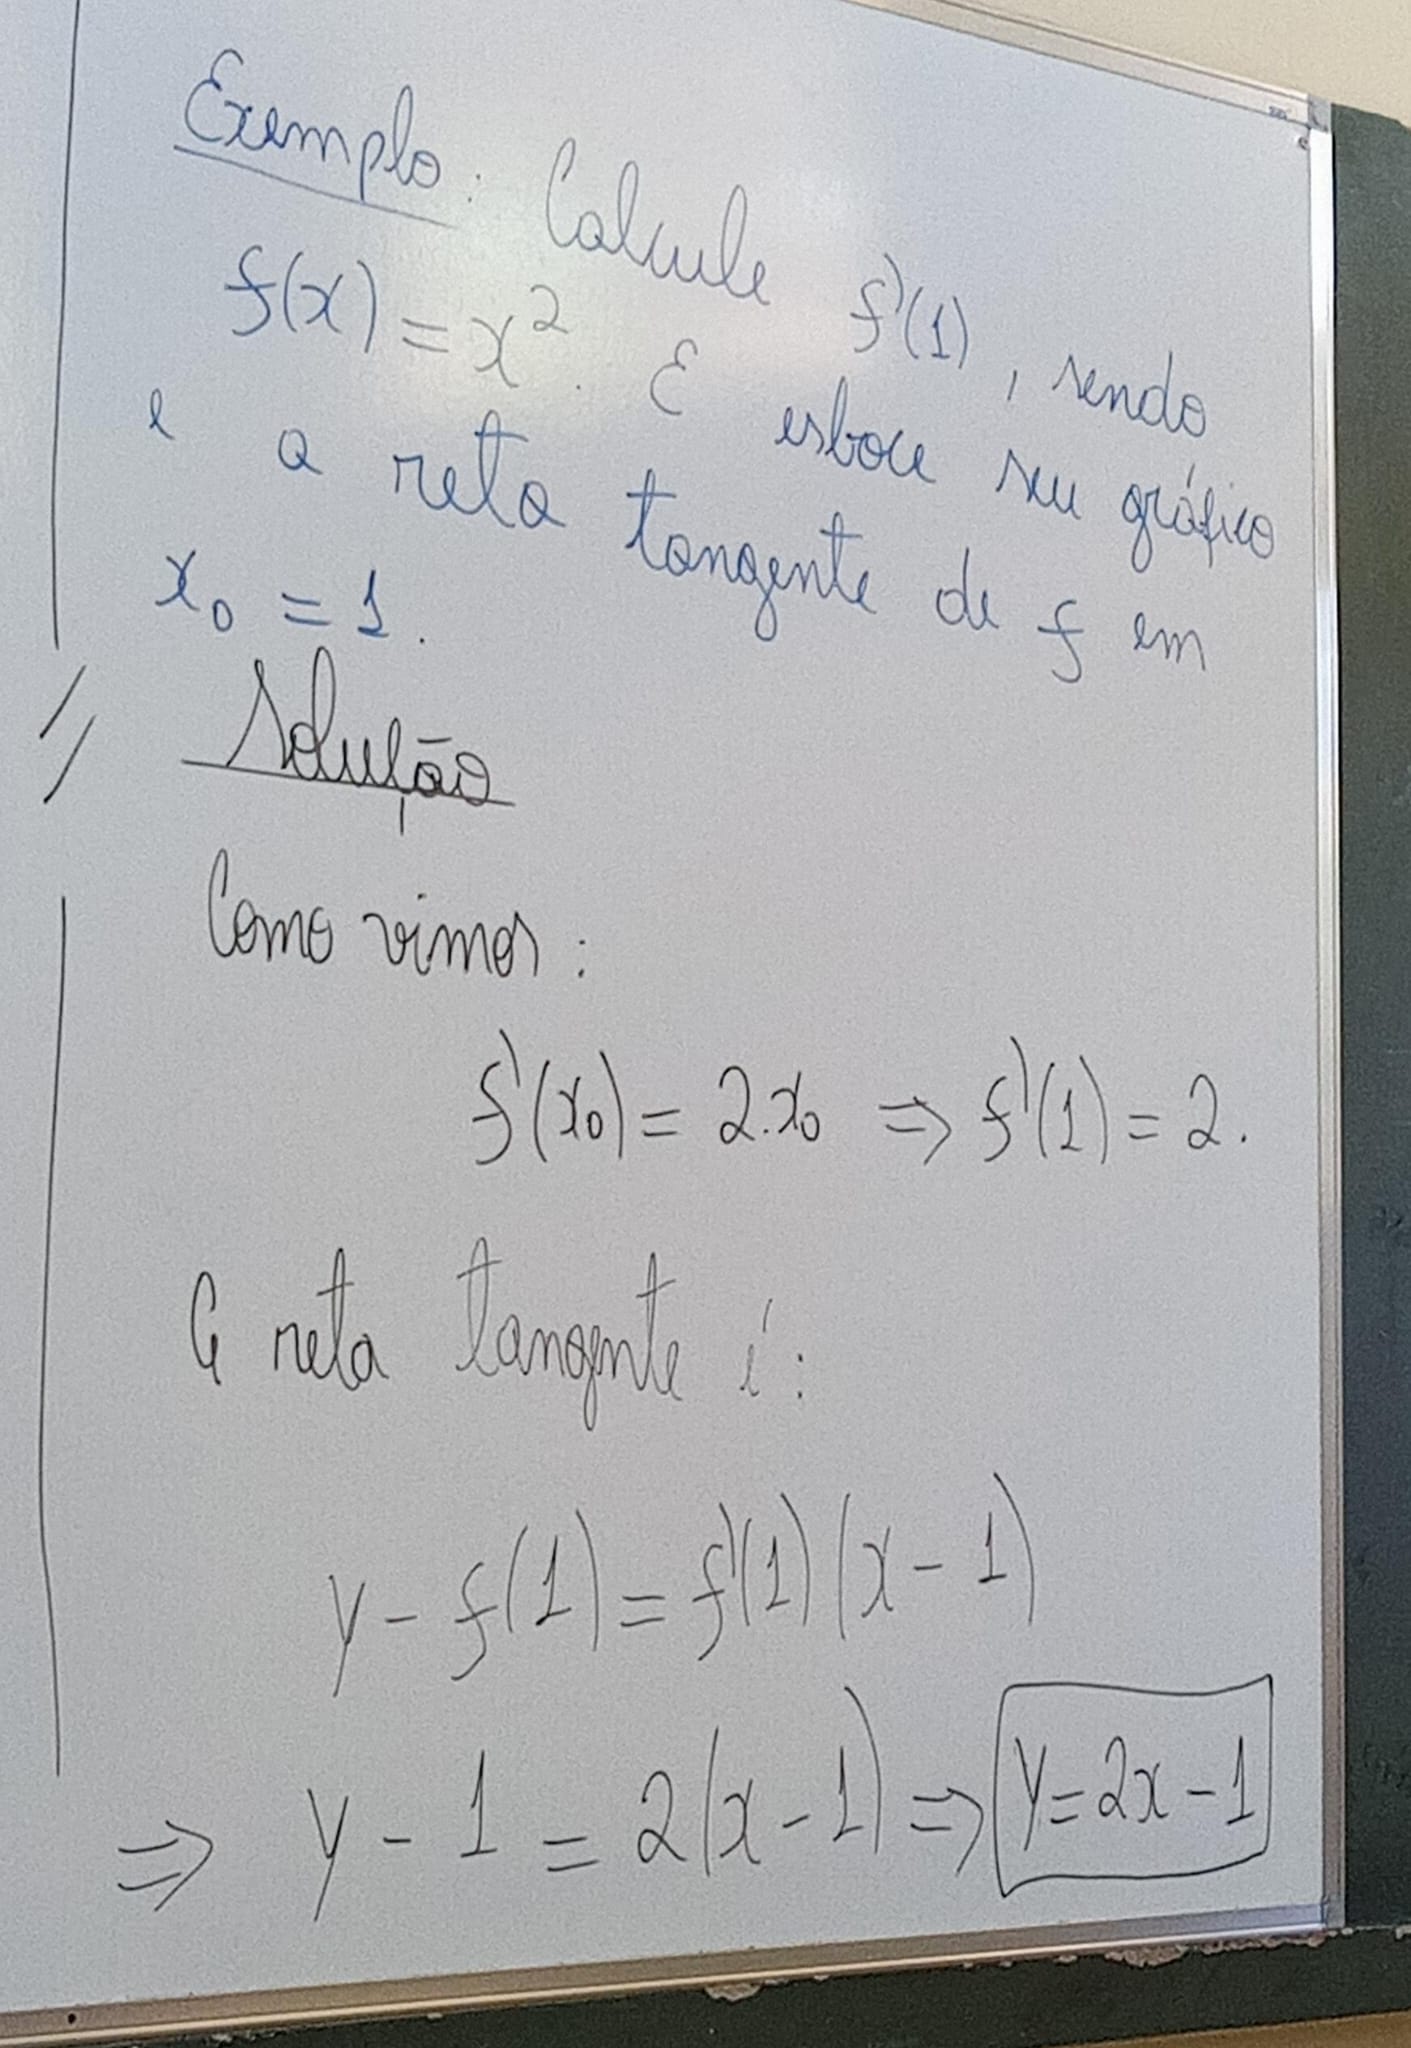 Exemplo: Calcule f'(1), sendo
f(x) = x². E esboce seu gráfico
e a reta tangente de f em
x₀ = 1.
Solução
Como vimos:
f'(x₀) = 2.x₀ ⇒ f'(1) = 2.
A reta tangente é:
y - f(1) = f'(1)(x - 1)
⇒ y - 1 = 2(x - 1) ⇒ y = 2x - 1